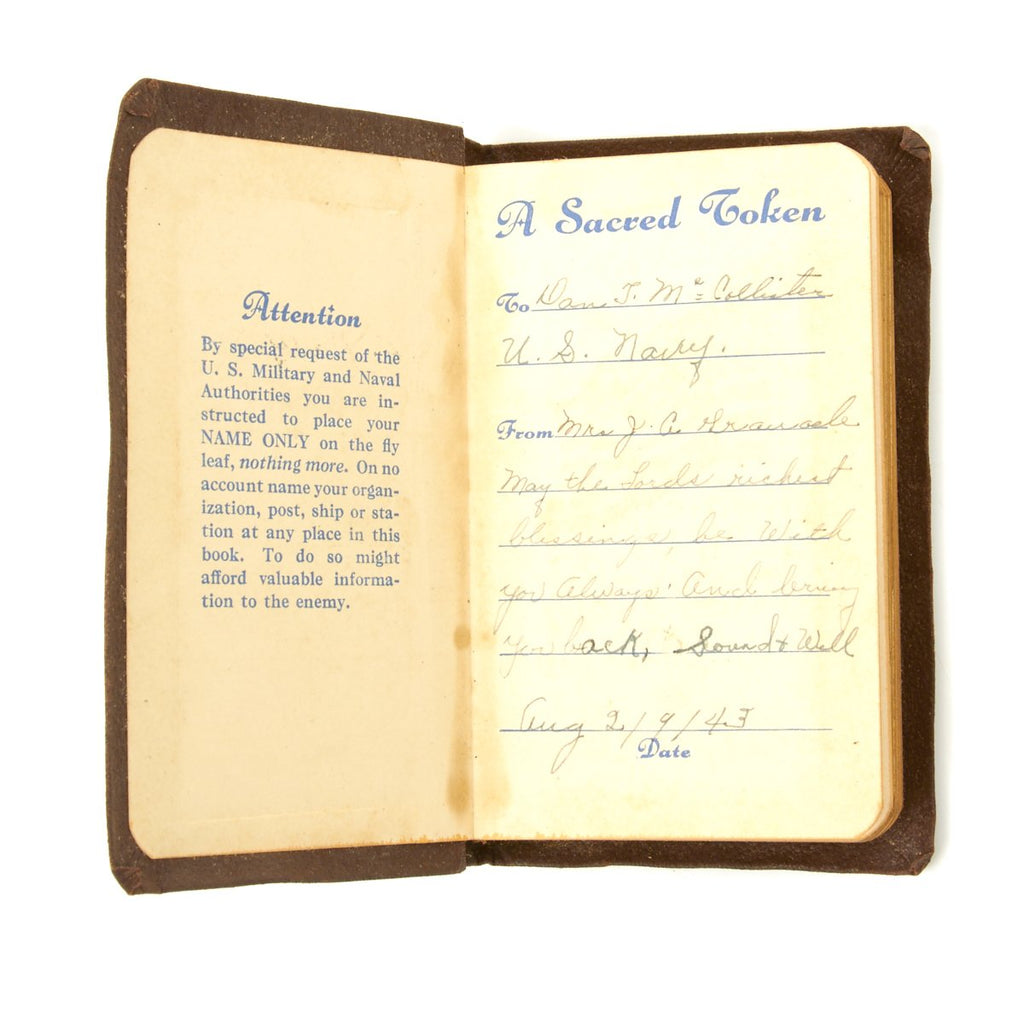 Attention
By special request of the
U. S. Military and Naval
Authorities you are in-
structed to place your
NAME ONLY on the fly
leaf, nothing more. On no
account name your organ-
ization, post, ship or sta-
tion at any place in this
book. To do so might
afford valuable informa-
tion to the enemy.
A Sacred Token
To Dan T. Mc Collister
U. S. Navy.
From Mrs J. C.
May the Lords richest
blessings, be With
you Always. And bring
you back, Sound & Well
Aug 2/9/43
Date